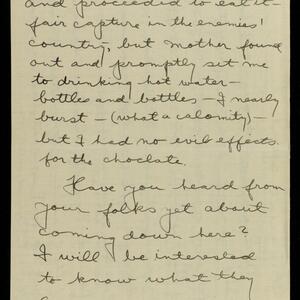 and proceeded to eat it –
fair capture in the enemies'
country, but mother found
out and promptly set me
to drinking hot water –
bottles and bottles – I nearly
burst – (what a calomity) –
but I had no evil effects
for the choclate.
Have you heard from
your folks yet about
coming down here?
I will be interested
to know what they